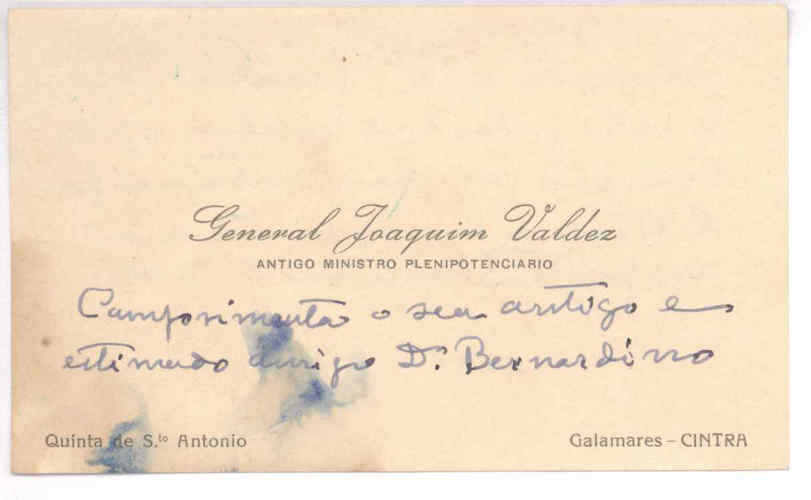 General Joaquim Valdez
ANTIGO MINISTRO PLENIPOTENCIARIO
Comprimenta o seu antigo e
estimado amigo Dr. Bernardino
Quinta de S.to Antonio
Galamares – CINTRA